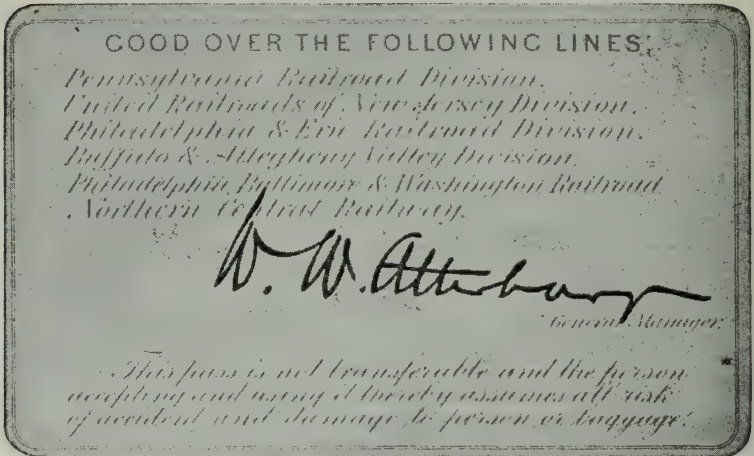 GOOD OVER THE FOLLOWING LINES:
Pennsylvania Railroad Division.
United Railroads of New Jersey Division.
Philadelphia & Erie Railroad Division.
Buffalo & Allegheny Valley Division.
Philadelphia Baltimore & Washington Railroad.
Northern Central Railway.
W. W. Atterbury
General Manager.
This pass is not transferable and the person
accepting and using it thereby assumes all risk
of accident and damage to person or baggage.